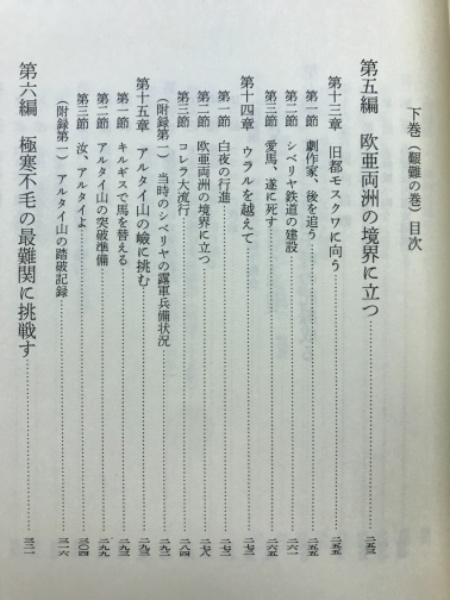 下巻（艱難の巻）目次
第五編 欧亜両洲の境界に立つ……二五三
第十三章 旧都モスクワに向う……二五五
第一節 劇作家、後を追う……二五五
第二節 シベリヤ鉄道の建設……二六一
第三節 愛馬、遂に死す……二六五
第十四章 ウラルを越えて……二七二
第一節 白夜の行進……二七二
第二節 欧亜両洲の境界に立つ……二七八
第三節 コレラ大流行……二八四
（附録第一） 当時のシベリヤの露軍兵備状況……二九二
第十五章 アルタイ山の嶮に挑む……二九三
第一節 キルギスで馬を替える……二九三
第二節 アルタイ山の突破準備……二九九
第三節 汝、アルタイよ……三〇四
（附録第一） アルタイ山の踏破記録……三一六
第六編 極寒不毛の最難関に挑戦す……三二一